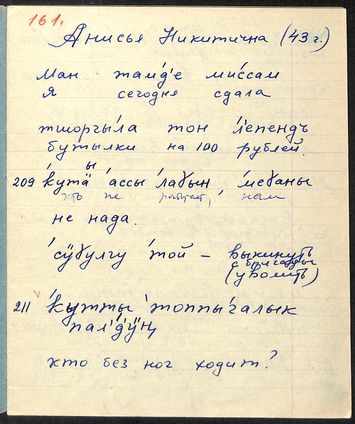 161.
Анисья Никитична (43 г.)
Ман тамд'е миссам
я сегодня сдала
тшоргы́ла тон л'епендъ
бутылки на 100 рублей.
209 'кутӓы 'ассы 'лабын, 'меданы
кто не работает, нам
не нада.
'сӱбулгу 'той – выкинуть
с бригады
(уволить)
211 'кутты 'топпы'галык
пал'дӱң,
кто без ног ходит?